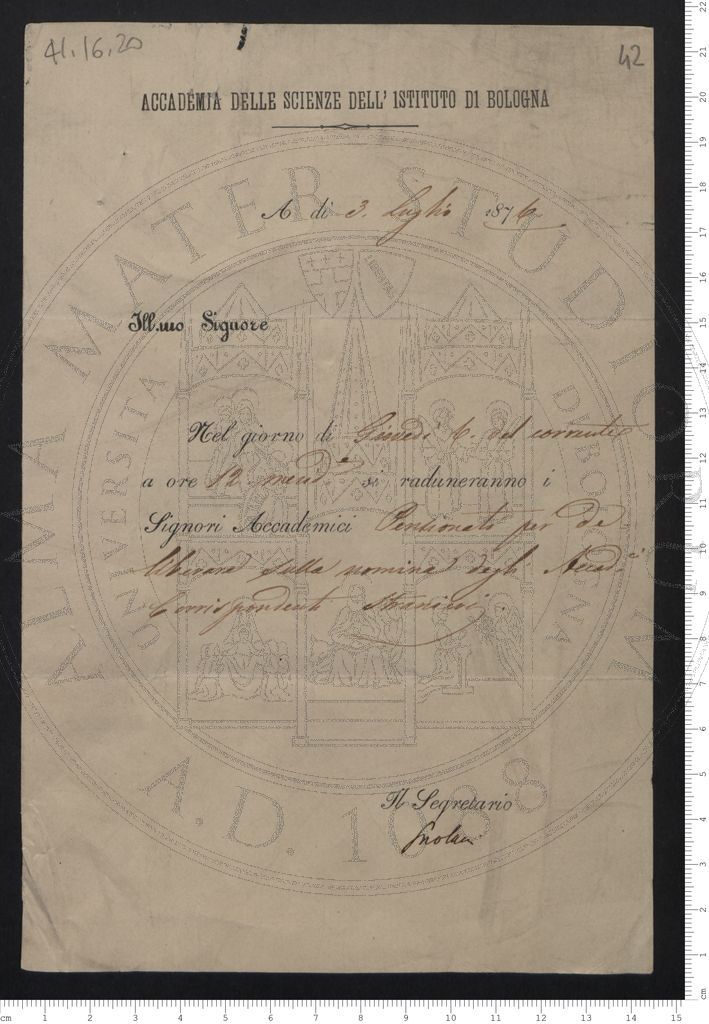 41.16.20
42
ACCADEMIA DELLE SCIENZE DELL' ISTITUTO DI BOLOGNA
A dì 3. Luglio 1876.
Ill.mo Signore
Nel giorno di Giovedì 6. del corrente
a ore 12 merid.e si raduneranno i
Signori Accademici Pensionati per de
liberare sulla nomina degli Accad.ci
Corrispondenti Stranieri
Il Segretario
ALMA MATER STUDIORUM
UNIVERSITÀ DI BOLOGNA
LIBERTAS
A.D. 1088